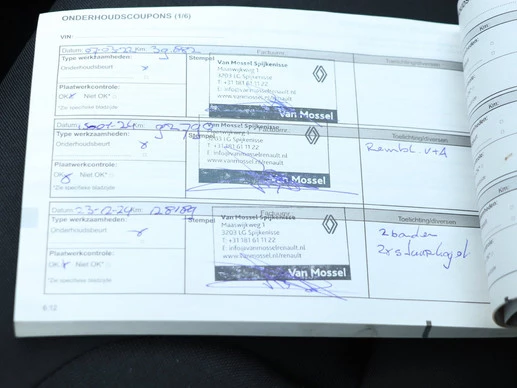 ONDERHOUDSCOUPONS (1/6)
VIN:
Datum: 07-03-22 Km: 39.882
Facturnr.
Toelichting/diversen
Type werkzaamheden:
Stempel
Onderhoudsbeurt
Van Mossel Spijkenisse
Maaswijkweg 1
3203 LG Spijkenisse
T: +31 181 61 11 22
E: info@vanmosselrenault.nl
www.vanmossel.nl/renault
Van Mossel
Plaatwerkcontrole:
OK Niet OK*
*Zie specifieke bladzijde
Datum: Km:
Type werkzaamheden:
Stempel
Onderhoudsbeurt
Van Mossel Spijkenisse
Maaswijkweg 1
3203 LG Spijkenisse
T: +31 181 61 11 22
E: info@vanmosselrenault.nl
www.vanmossel.nl/renault
Van Mossel
Toelichting/diversen
Rembl. V+A
Plaatwerkcontrole:
OK Niet OK*
*Zie specifieke bladzijde
Datum: 23-12-24 Km: 128189
Facturnr.
Toelichting/diversen
Type werkzaamheden:
Stempel
Onderhoudsbeurt
Van Mossel Spijkenisse
Maaswijkweg 1
3203 LG Spijkenisse
T: +31 181 61 11 22
E: info@vanmosselrenault.nl
www.vanmossel.nl/renault
Van Mossel
2 banden
2x stuurkogel
Plaatwerkcontrole:
OK Niet OK*
*Zie specifieke bladzijde
6.12
Km:
Km: